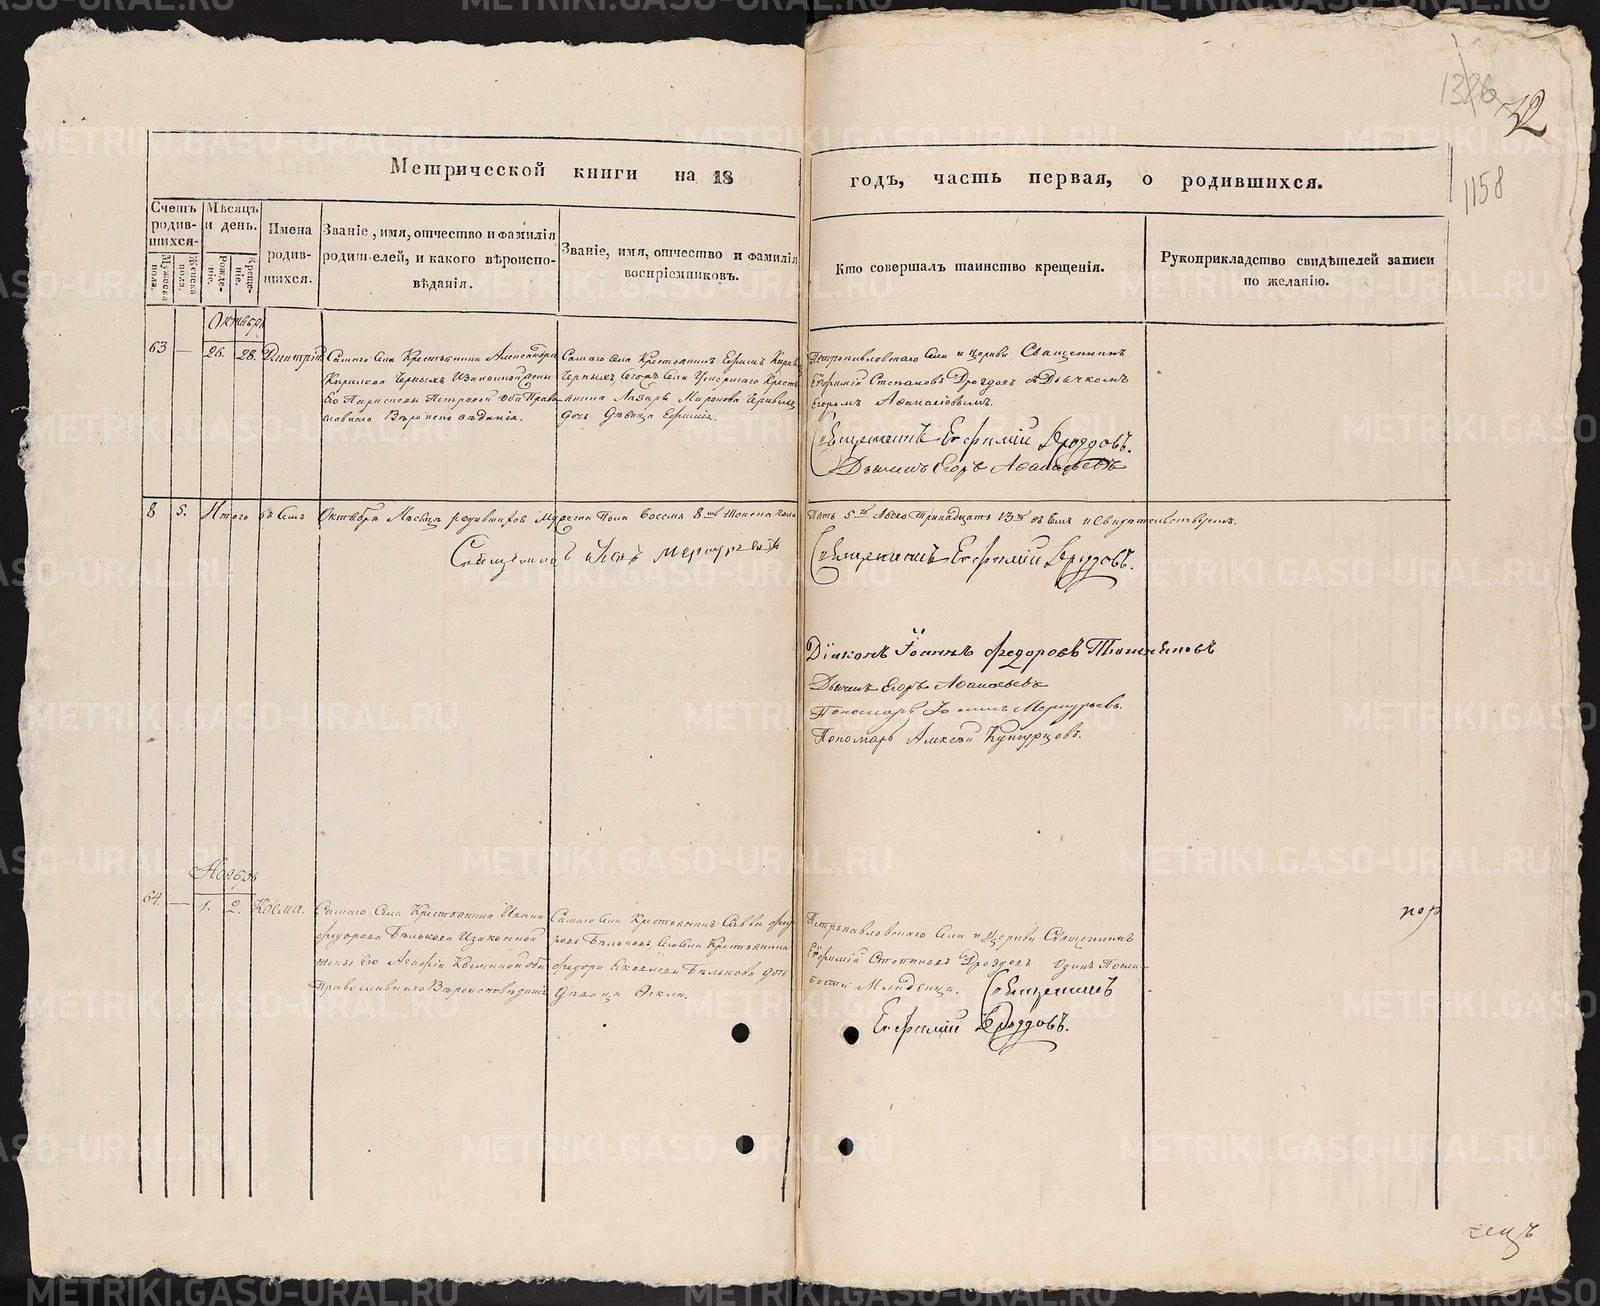 1326
72
1158
Метрической книги на 18 годъ, часть первая, о родившихся.
Счетъ родив-шихся.
Мужеска пола.
Женска пола.
Мѣсяцъ и день.
Рожде-нія.
Креще-нія.
Имена родив-шихся.
Званіе, имя, отчество и фамилія родителей, и какого вѣроиспо-вѣданія.
Званіе, имя, отчество и фамилія воспріемниковъ.
Кто совершалъ таинство крещенія.
Рукоприкладство свидѣтелей записи по желанію.
Октябрь
63 — 26. 28. Димитрій
Самаго Села Крестьянина Александра
Кирилова Черныхъ Изаконной жены
Его Параскевы Петровой Оба Право
славнаго Вѣроисповѣданія.
Самаго Села Крестьянинъ Ефимъ Кирил
Черныхъ, Сегожъ Села Крестья
янина Лазаря Миронова
Дочь Дѣвица Ефимія.
Петропавловскаго Села и Церкви Священникъ
Евфимій Степановъ Дроздовъ съ Дьячкомъ
Егоромъ Афанасьевымъ.
Священникъ Евфимій Дроздовъ.
Дьячекъ Егоръ Афанасьевъ
8 5. Итого въ Семъ Октябрѣ Мѣсяцѣ родившихся Мужеска Пола Восемь 8 Женска пола Пять 5 Всего Тринадцать 13 въ Чемъ и Свидетельствуемъ.
Священникъ
Священникъ Евфимій Дроздовъ.
Діаконъ Іоаннъ Федоровъ
Дьячекъ Егоръ Афанасьевъ
Пономарь Меркурьевъ.
Пономарь Алексѣй Кунгурцовъ.
Ноябрь
64. — 1. 2. Косма.
Самаго Села Крестьянина Ивана
Федорова Бѣлькова Изаконной
жены Его Козминой оба
Православнаго Вѣроисповѣданія
Самаго Села Крестьянинъ Савва Фед
ровъ Бѣльковъ, Сего Села Крестьянина
Федора Яковлева Бѣлькова дочь
Дѣвица Фекла.
Петропавловскаго Села и Церкви Священникъ
Евфимій Степановъ Дроздовъ Одинъ Посла-
бости Младенца. Священникъ
Евфимій Дроздовъ.
METRIKI.GASO-URAL.RU